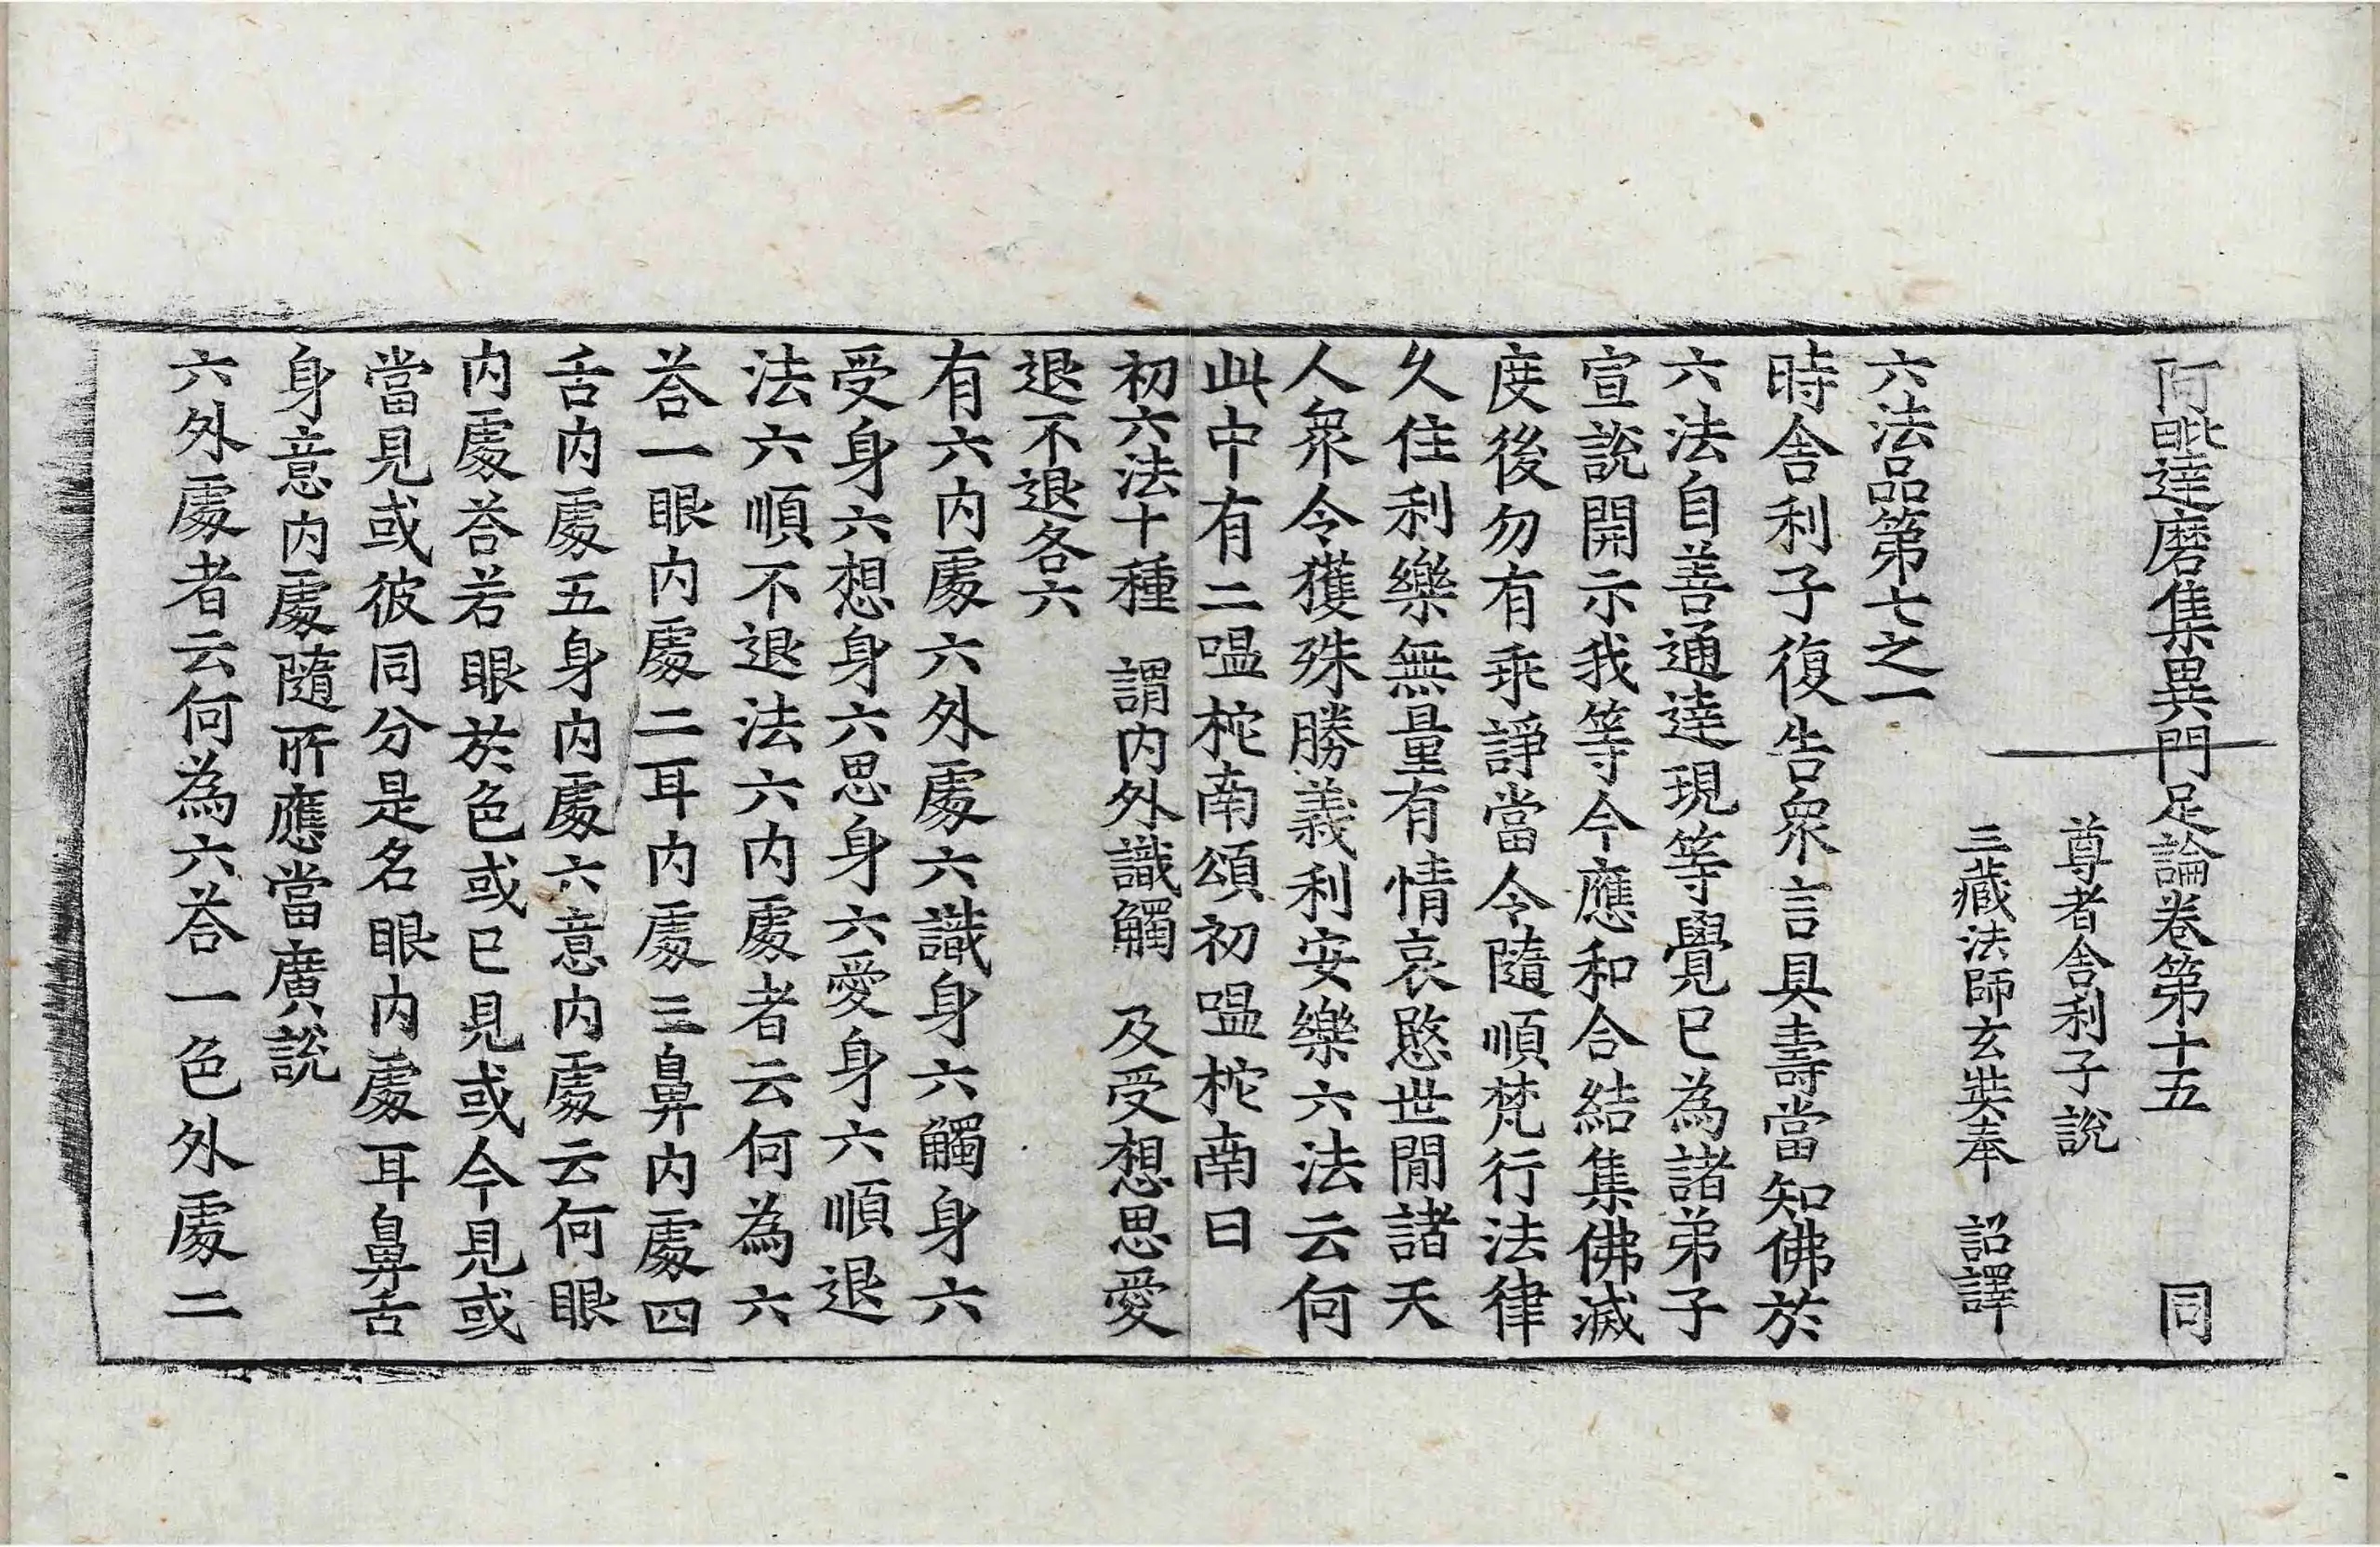 阿毗達磨集異門足論卷第十五 同
尊者舍利子說
三藏法師玄奘奉 詔譯
六法品第七之一
時舍利子復告衆言具壽當知佛於
六法自善通達現等覺已為諸弟子
宣說開示我等今應和合結集佛滅
度後勿有乖諍當令隨順梵行法律
久住利樂無量有情哀愍世間諸天
人衆令獲殊勝義利安樂六法云何
此中有二嗢柁南頌初嗢柁南曰
初六法十種 謂內外識觸 及受想思愛
退不退各六
有六內處六外處六識身六觸身六
受身六想身六思身六愛身六順退
法六順不退法六內處者云何為六
荅一眼內處二耳內處三鼻內處四
舌內處五身內處六意內處云何眼
內處荅若眼於色或已見或今見或
當見或彼同分是名眼內處耳鼻舌
身意內處隨所應當廣說
六外處者云何為六荅一色外處二